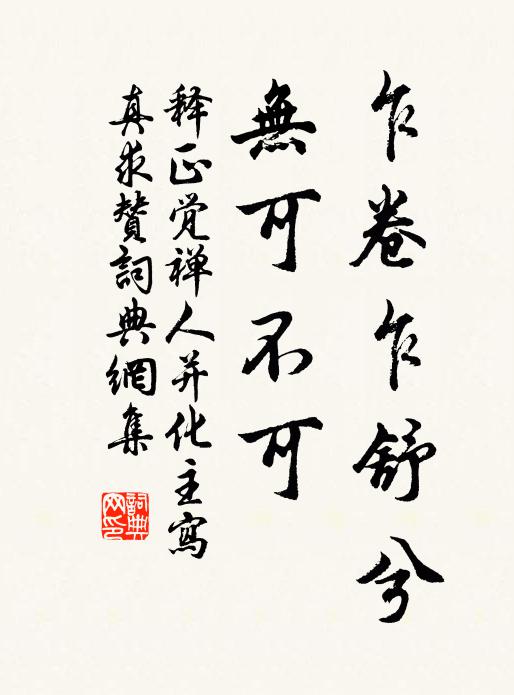 乍卷乍舒兮
無可不可
释正觉禅人并化主寫
真求賛詞典網集
詞典
网印